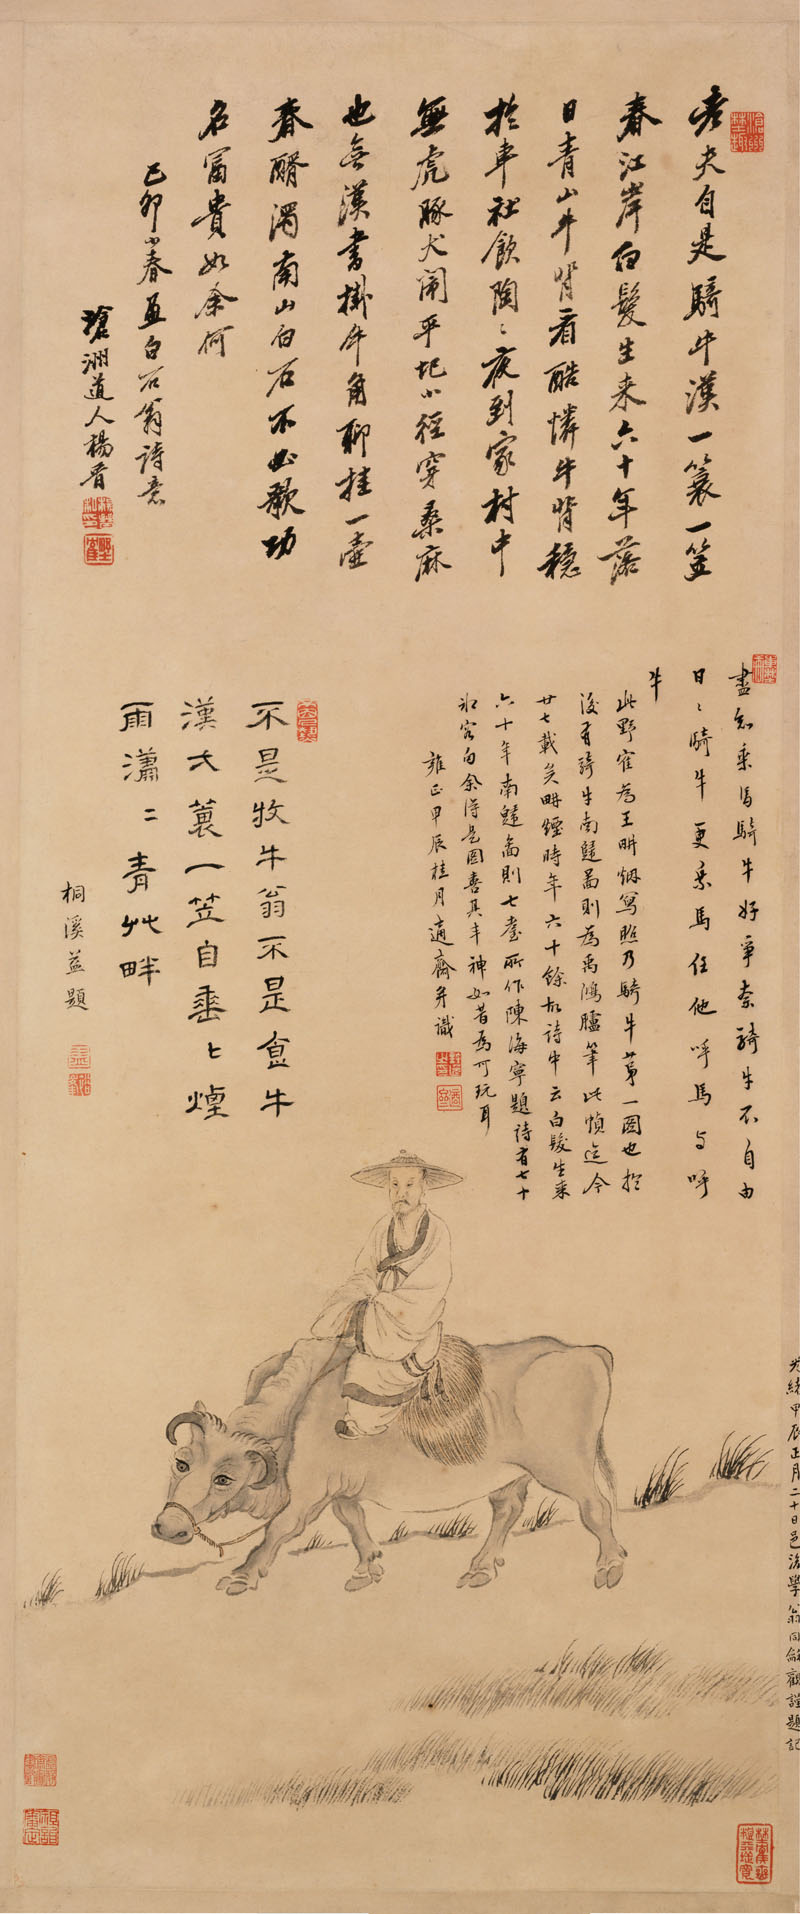 老夫自是騎牛漢一蓑一笠
春江岸白髮生來六十年落
日青山牛背看酷憐牛背穩
於車社飲陶〻夜到家村中
無虎豚犬鬧平圯小徑穿桑麻
也無漢書掛牛角聊挂一壺
春醑濁南山白石不必歌功
名富貴如余何
己卯小春畫白石翁詩意
瀛洲道人楊晉
盡知乘馬騎牛好爭奈騎牛不自由
日〻騎牛更乘馬任他呼馬與呼
牛
此野寉為王畊烟寫照乃騎牛第一圖也於
後有騎牛南墅圖則為禹鴻臚筆此幀迄今
廿七載矣畊煙時年六十餘故詩中云白髮生來
六十年南墅圖則七耋所作陳海寧題詩有七十
客句余得是圖喜其丰神如昔為可玩耳
雍正甲辰桂月適齋弁識
不是牧牛翁不是飯牛
漢大蓑一笠自垂〻煙
雨瀟〻青艸畔
桐溪益題
光緒甲辰正月二十日邑後學翁同龢觀謹題記